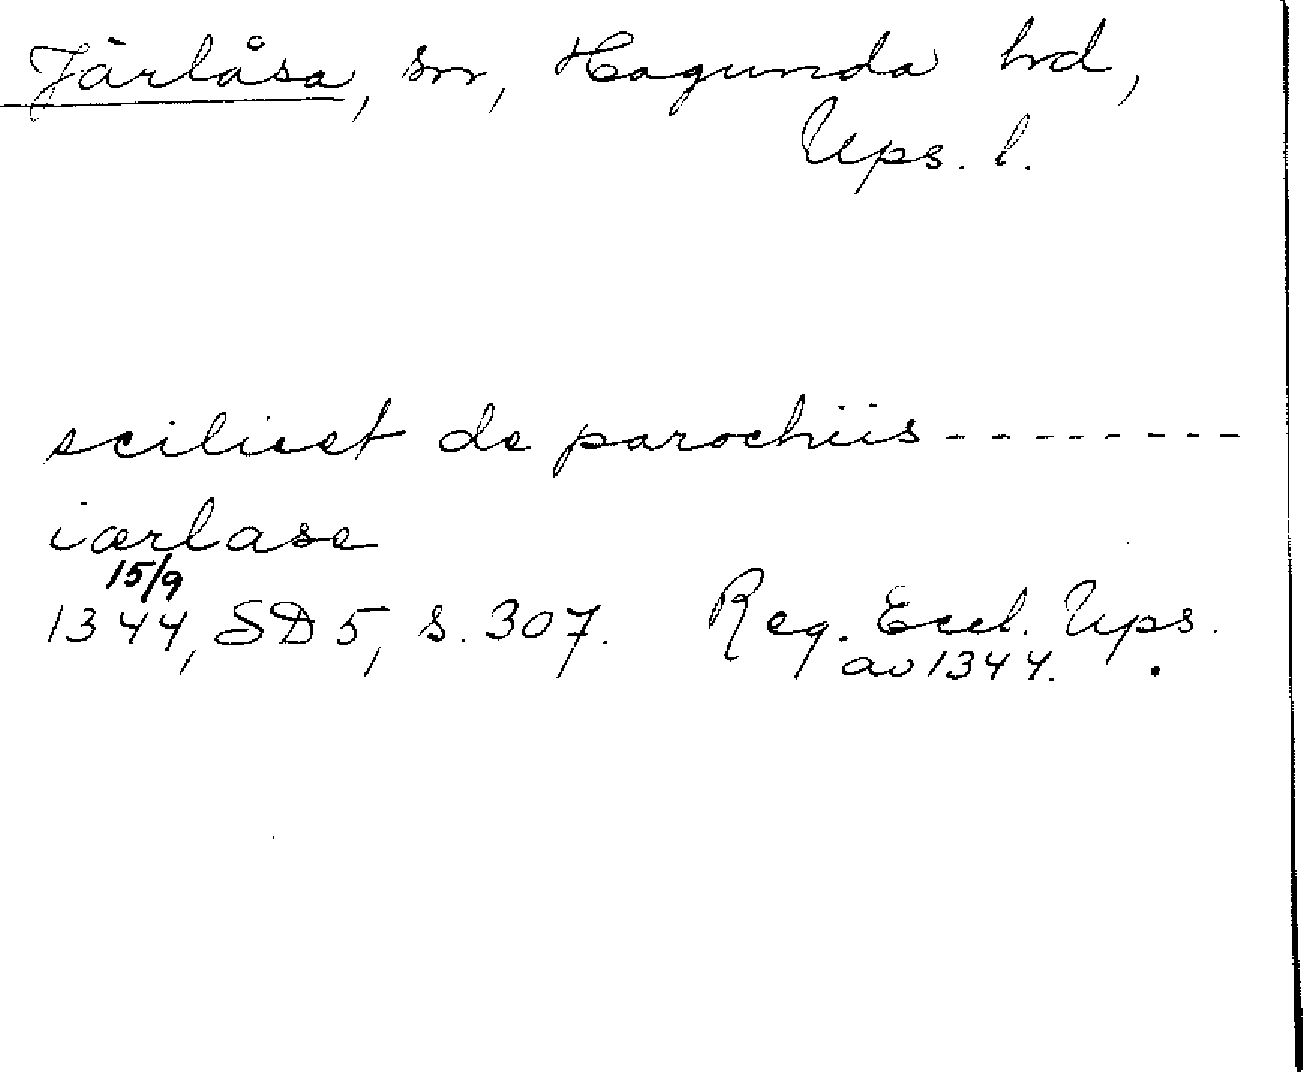 Järlåsa, sn, Hagunda hd,
Ups. l.
scilicet de parochiis --------
iærlasa
15/9
1344, SD 5, s. 307. Reg. Eccl. Ups.
av 1344.